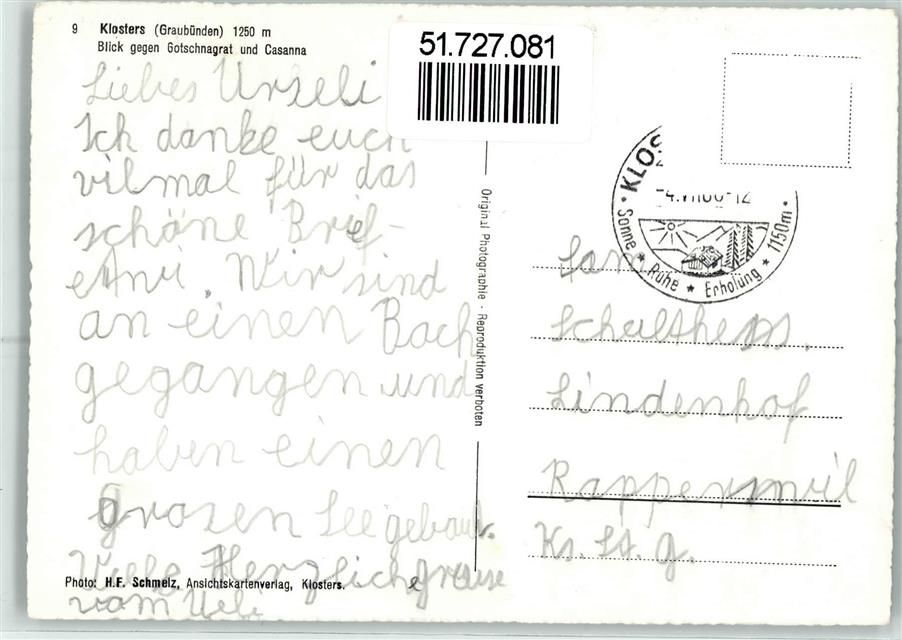 9 Klosters (Graubünden) 1250 m
Blick gegen Gotschnagrat und Casanna
51.727.081
Liebes Urseli
Ich danke euch
vilmal für das
schöne Brief-
Wir sind
an einen Bach
gegangen und
haben einen
grosen See gebaut.
Viele Herzliche grüse
vom Ueli
Photo: H.F. Schmelz, Ansichtskartenverlag, Klosters.
Original Photographie - Reproduktion verboten
KLOS
Sonne ★ Ruhe ★ Erholung ★ 1150m
Fam
Schulthess.
Lindenhof
Rapperswil
Kt. St. g.